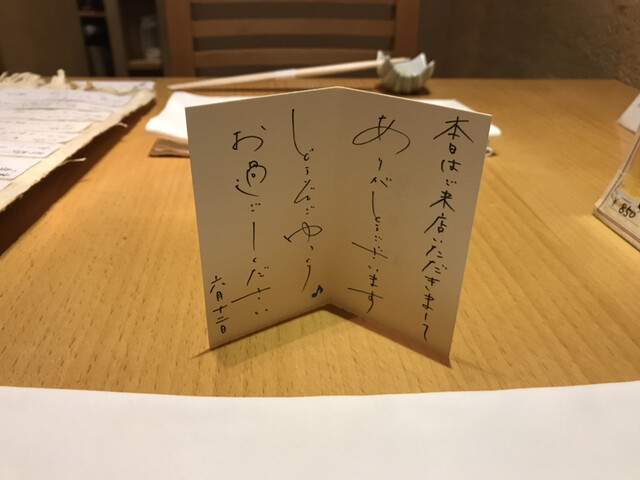 本日はご来店いただきまして
ありがとうございます
どうぞごゆっくり♪
お過ごしください
六月十二日
850